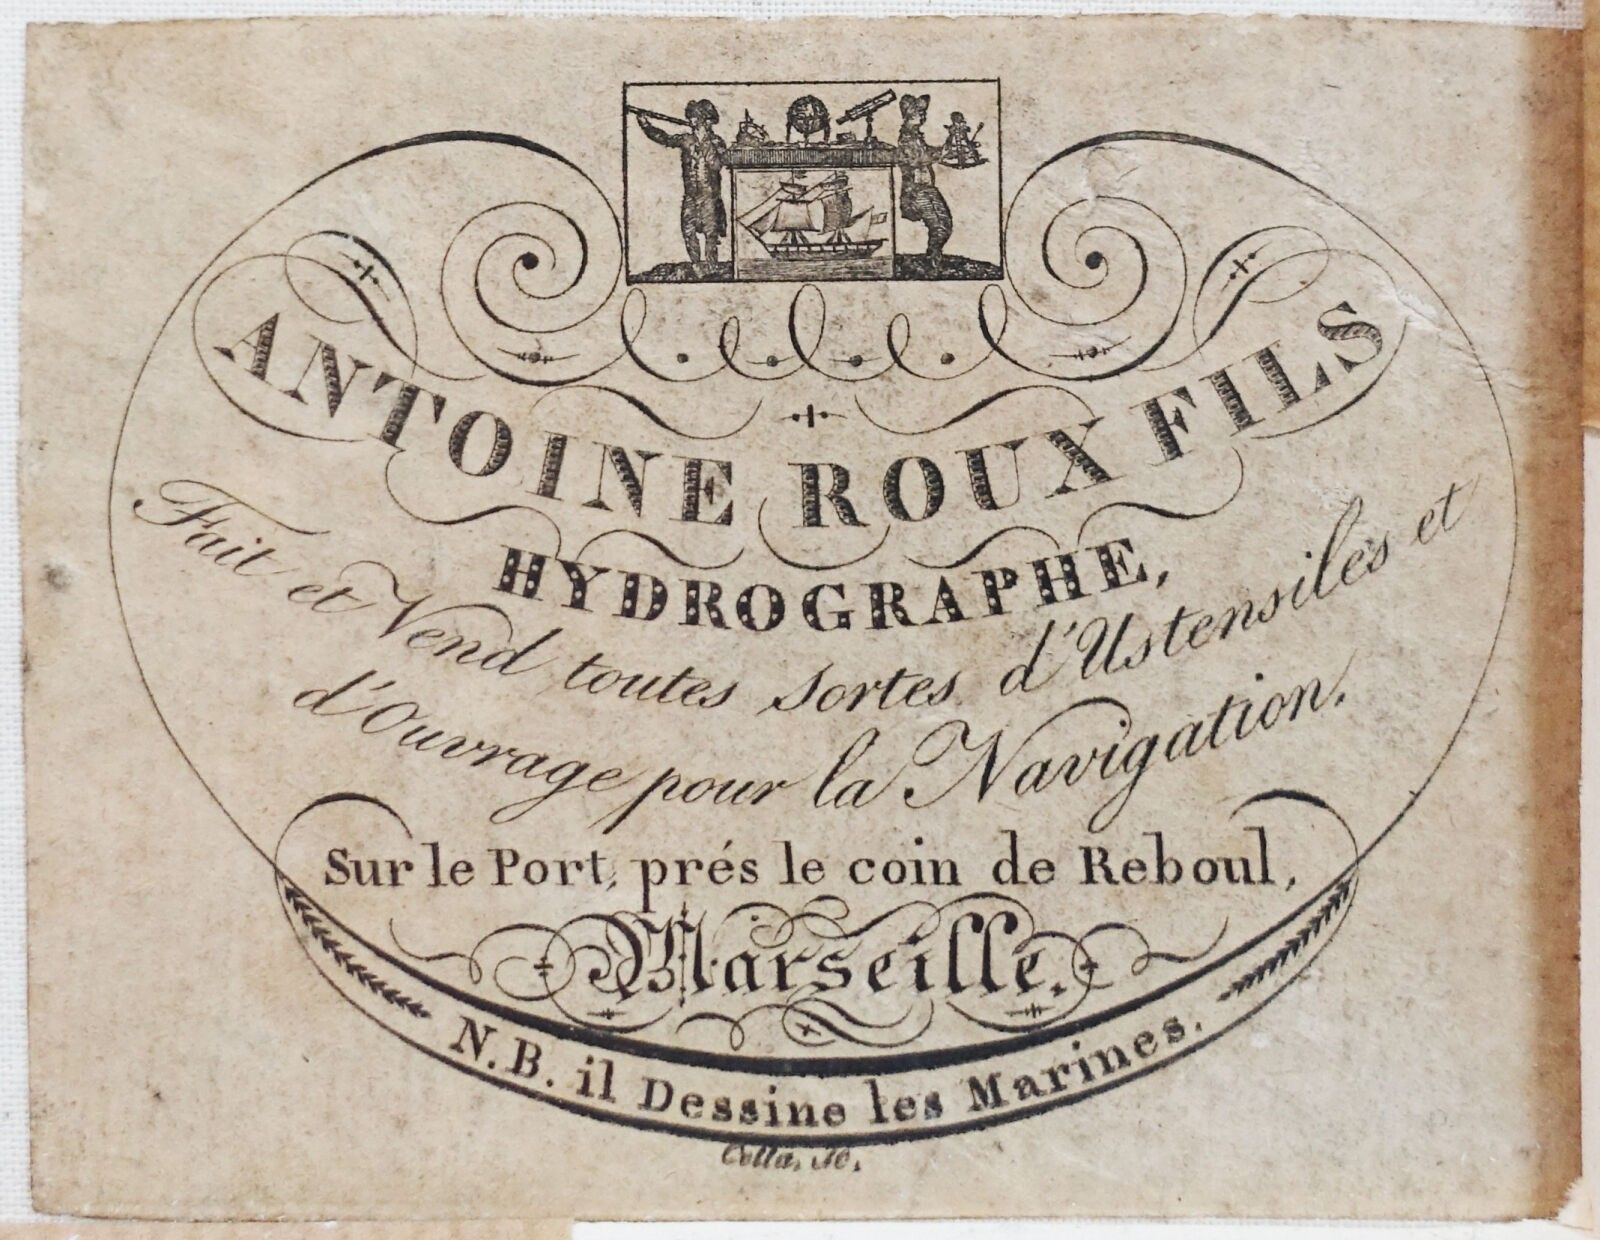 ANTOINE ROUX FILS
HYDROGRAPHE,
Fait et Vend toutes sortes d'Ustensiles et
d'Ouvrage pour la Navigation.
Sur le Port, prés le coin de Reboul,
Marseille.
N.B. il Dessine les Marines.